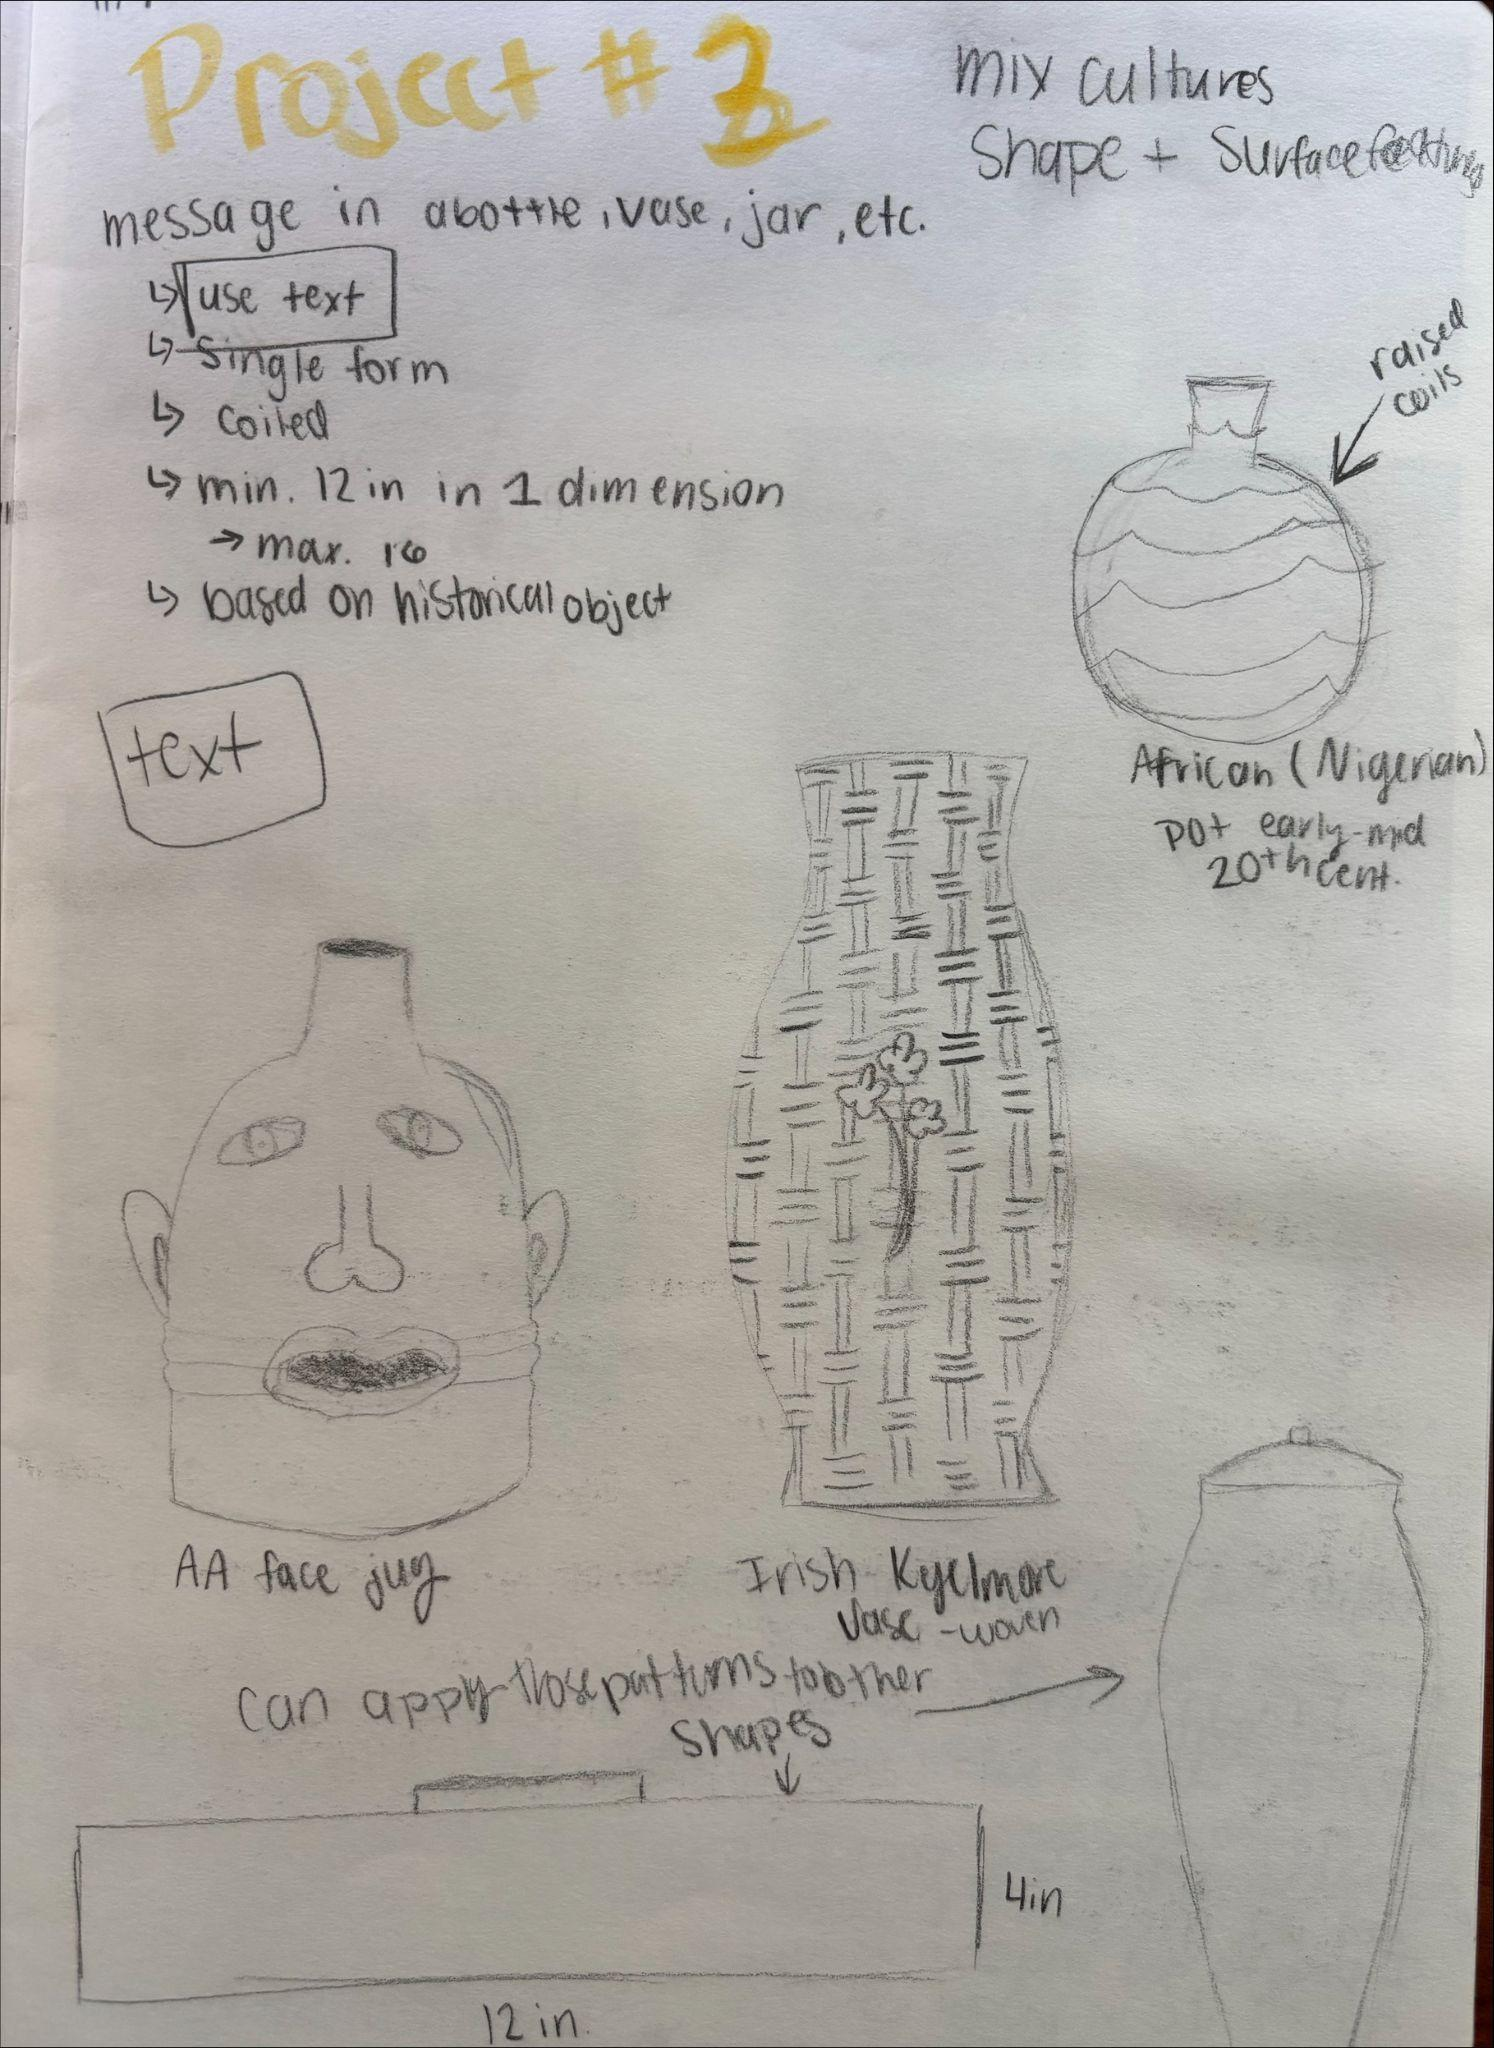 Project # 2
mix cultures
shape + surface features
message in a bottle, vase, jar, etc.
↳ use text
↳ single form
↳ coiled
↳ min. 12 in in 1 dimension
→ max. 16
↳ based on historical object
raised
coils
text
African (Nigerian)
pot early-mid
20th cent.
AA face jug
Irish Kyelmore
Vase - woven
can apply those patturns to other
shapes
4in
12 in.